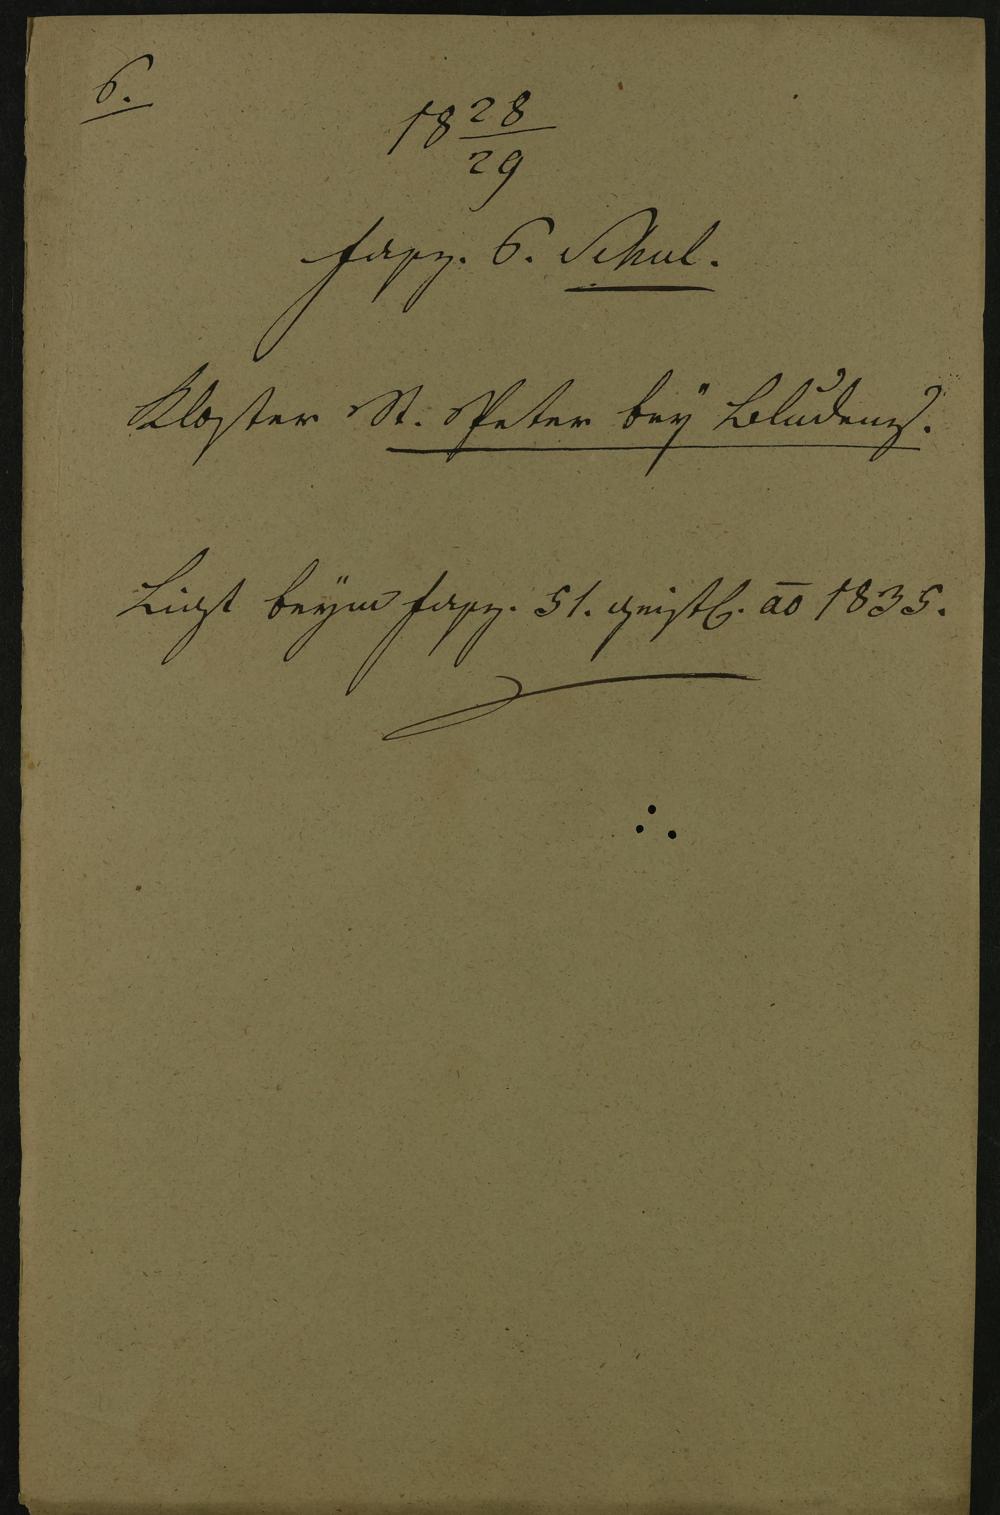 6.
18 28/29
Fasz. 6. Schul.
Kloster St. Peter bey Bludenz.
Ligt beym Fasz. 51. geistl. ao 1835.